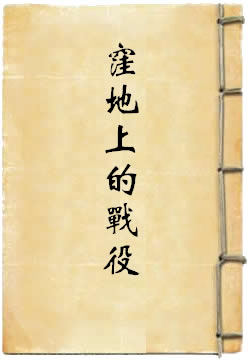 窪地上的戰役